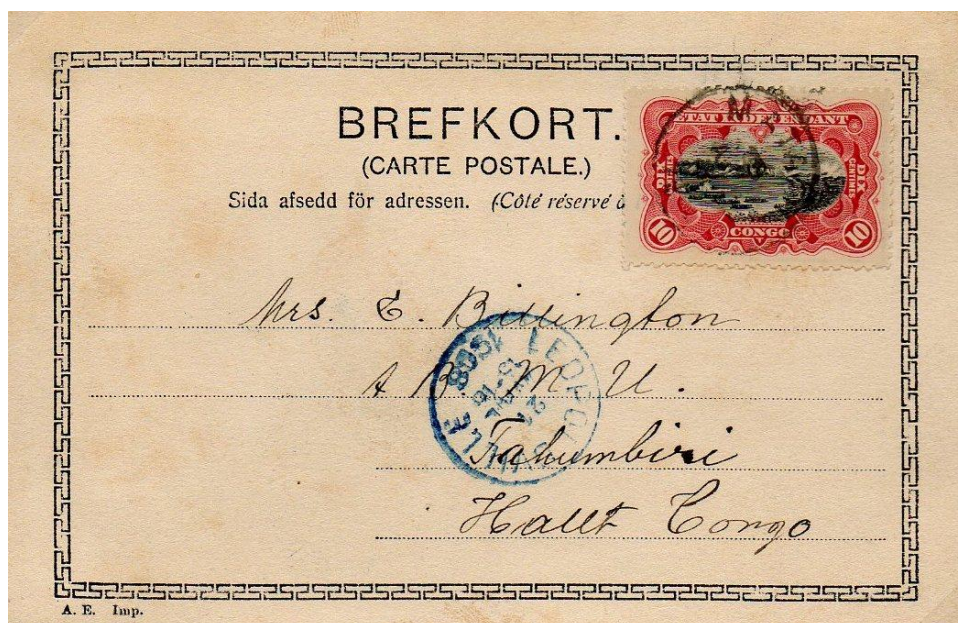 BREFKORT.
(CARTE POSTALE.)
Sida afsedd för adressen. (Côté réservé
ETAT INDEPENDANT
DIX CENTIMES
10
CONGO
10
Mrs. E. Billington
A B. M. U.
Tshumbiri
Haut Congo
LEOPOLDVILLE
1908
A. E. Imp.